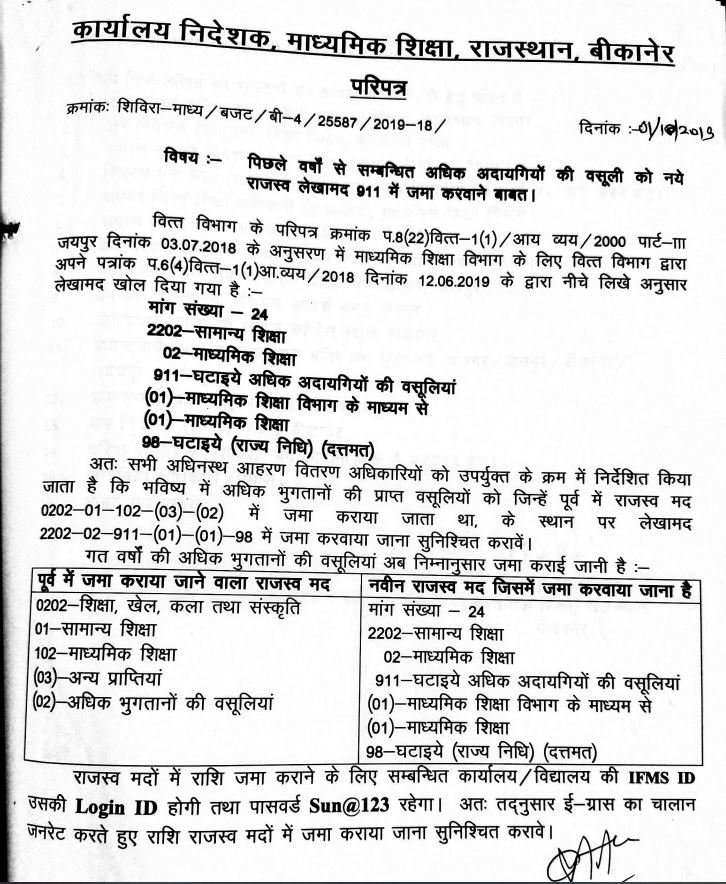 कार्यालय निदेशक, माध्यमिक शिक्षा, राजस्थान, बीकानेर
परिपत्र
क्रमांकः शिविरा–माध्य/बजट/बी–4/25587/2019–18/ दिनांक :–01/10/2019
विषय :– पिछले वर्षो से सम्बन्धित अधिक अदायगियों की वसूली को नये
राजस्व लेखामद 911 में जमा करवाने बाबत।
वित्त विभाग के परिपत्र क्रमांक प.8(22)वित्त–1(1)/आय व्यय/2000 पार्ट–III
जयपुर दिनांक 03.07.2018 के अनुसरण में माध्यमिक शिक्षा विभाग के लिए वित्त विभाग द्वारा
अपने पत्रांक प.6(4)वित्त–1(1)आ.व्यय/2018 दिनांक 12.06.2019 के द्वारा नीचे लिखे अनुसार
लेखामद खोल दिया गया है :–
मांग संख्या – 24
2202–सामान्य शिक्षा
02–माध्यमिक शिक्षा
911–घटाइये अधिक अदायगियों की वसूलियां
(01)–माध्यमिक शिक्षा विभाग के माध्यम से
(01)–माध्यमिक शिक्षा
98–घटाइये (राज्य निधि) (दत्तमत)
अतः सभी अधिनस्थ आहरण वितरण अधिकारियों को उपर्युक्त के क्रम में निर्देशित किया
जाता है कि भविष्य में अधिक भुगतानों की प्राप्त वसूलियों को जिन्हें पूर्व में राजस्व मद
0202–01–102–(03)–(02) में जमा कराया जाता था, के स्थान पर लेखामद
2202–02–911–(01)–(01)–98 में जमा करवाया जाना सुनिश्चित करावें।
गत वर्षो की अधिक भुगतानों की वसूलियां अब निम्नानुसार जमा कराई जानी है :–
पूर्व में जमा कराया जाने वाला राजस्व मद
0202–शिक्षा, खेल, कला तथा संस्कृति
01–सामान्य शिक्षा
102–माध्यमिक शिक्षा
(03)–अन्य प्राप्तियां
(02)–अधिक भुगतानों की वसूलियां
नवीन राजस्व मद जिसमें जमा करवाया जाना है
मांग संख्या – 24
2202–सामान्य शिक्षा
02–माध्यमिक शिक्षा
911–घटाइये अधिक अदायगियों की वसूलियां
(01)–माध्यमिक शिक्षा विभाग के माध्यम से
(01)–माध्यमिक शिक्षा
98–घटाइये (राज्य निधि) (दत्तमत)
राजस्व मदों में राशि जमा कराने के लिए सम्बन्धित कार्यालय/विद्यालय की IFMS ID
उसकी Login ID होगी तथा पासवर्ड Sun@123 रहेगा। अतः तद्नुसार ई–ग्रास का चालान
जनरेट करते हुए राशि राजस्व मदों में जमा कराया जाना सुनिश्चित करावे।